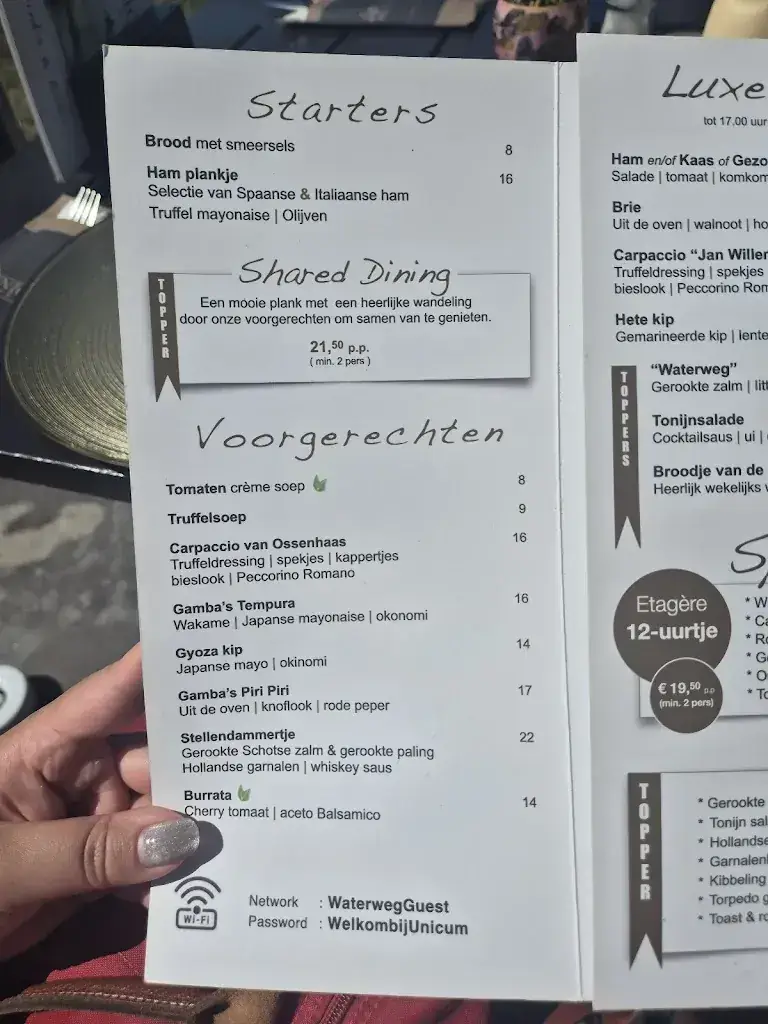 Starters
Brood met smeersels 8
Ham plankje 16
Selectie van Spaanse & Italiaanse ham
Truffel mayonaise | Olijven
TOPPER
Shared Dining
Een mooie plank met een heerlijke wandeling
door onze voorgerechten om samen van te genieten.
21,50 p.p.
( min. 2 pers )
Voorgerechten
Tomaten crème soep 8
Truffelsoep 9
Carpaccio van Ossenhaas 16
Truffeldressing | spekjes | kappertjes
bieslook | Peccorino Romano
Gamba's Tempura 16
Wakame | Japanse mayonaise | okonomi
Gyoza kip 14
Japanse mayo | okinomi
Gamba's Piri Piri 17
Uit de oven | knoflook | rode peper
Stellendammertje 22
Gerookte Schotse zalm & gerookte paling
Hollandse garnalen | whiskey saus
Burrata 14
Cherry tomaat | aceto Balsamico
Wi-Fi
Network : WaterwegGuest
Password : WelkombijUnicum
Luxe
tot 17.00 uur
Ham en/of Kaas of Gezo
Salade | tomaat | komkom
Brie
Uit de oven | walnoot | ho
Carpaccio "Jan Willem
Truffeldressing | spekjes
bieslook | Peccorino Rom
Hete kip
Gemarineerde kip | lente
TOPPERS
"Waterweg"
Gerookte zalm | litt
Tonijnsalade
Cocktailsaus | ui |
Broodje van de
Heerlijk wekelijks
Sp
Etagère
12-uurtje
€ 19,50 p.p
(min. 2 pers)
* W
* Ca
* Ro
* Ge
* O
* To
TOPPER
* Gerookte
* Tonijn sal
* Hollandse
* Garnalen
* Kibbeling
* Torpedo g
* Toast & ro